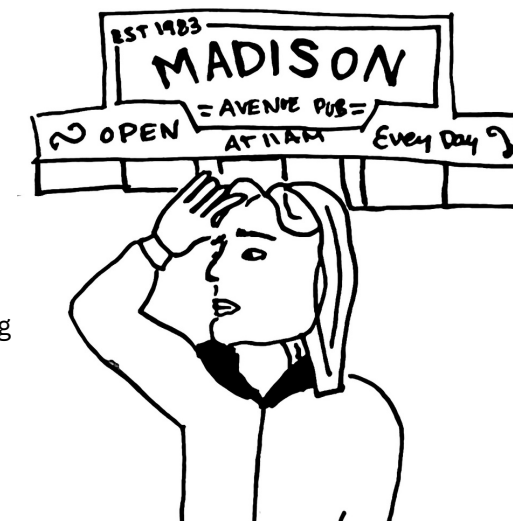 EST 1983
MADISON
= AVENUE PUB =
OPEN AT 11 AM Every Day
g